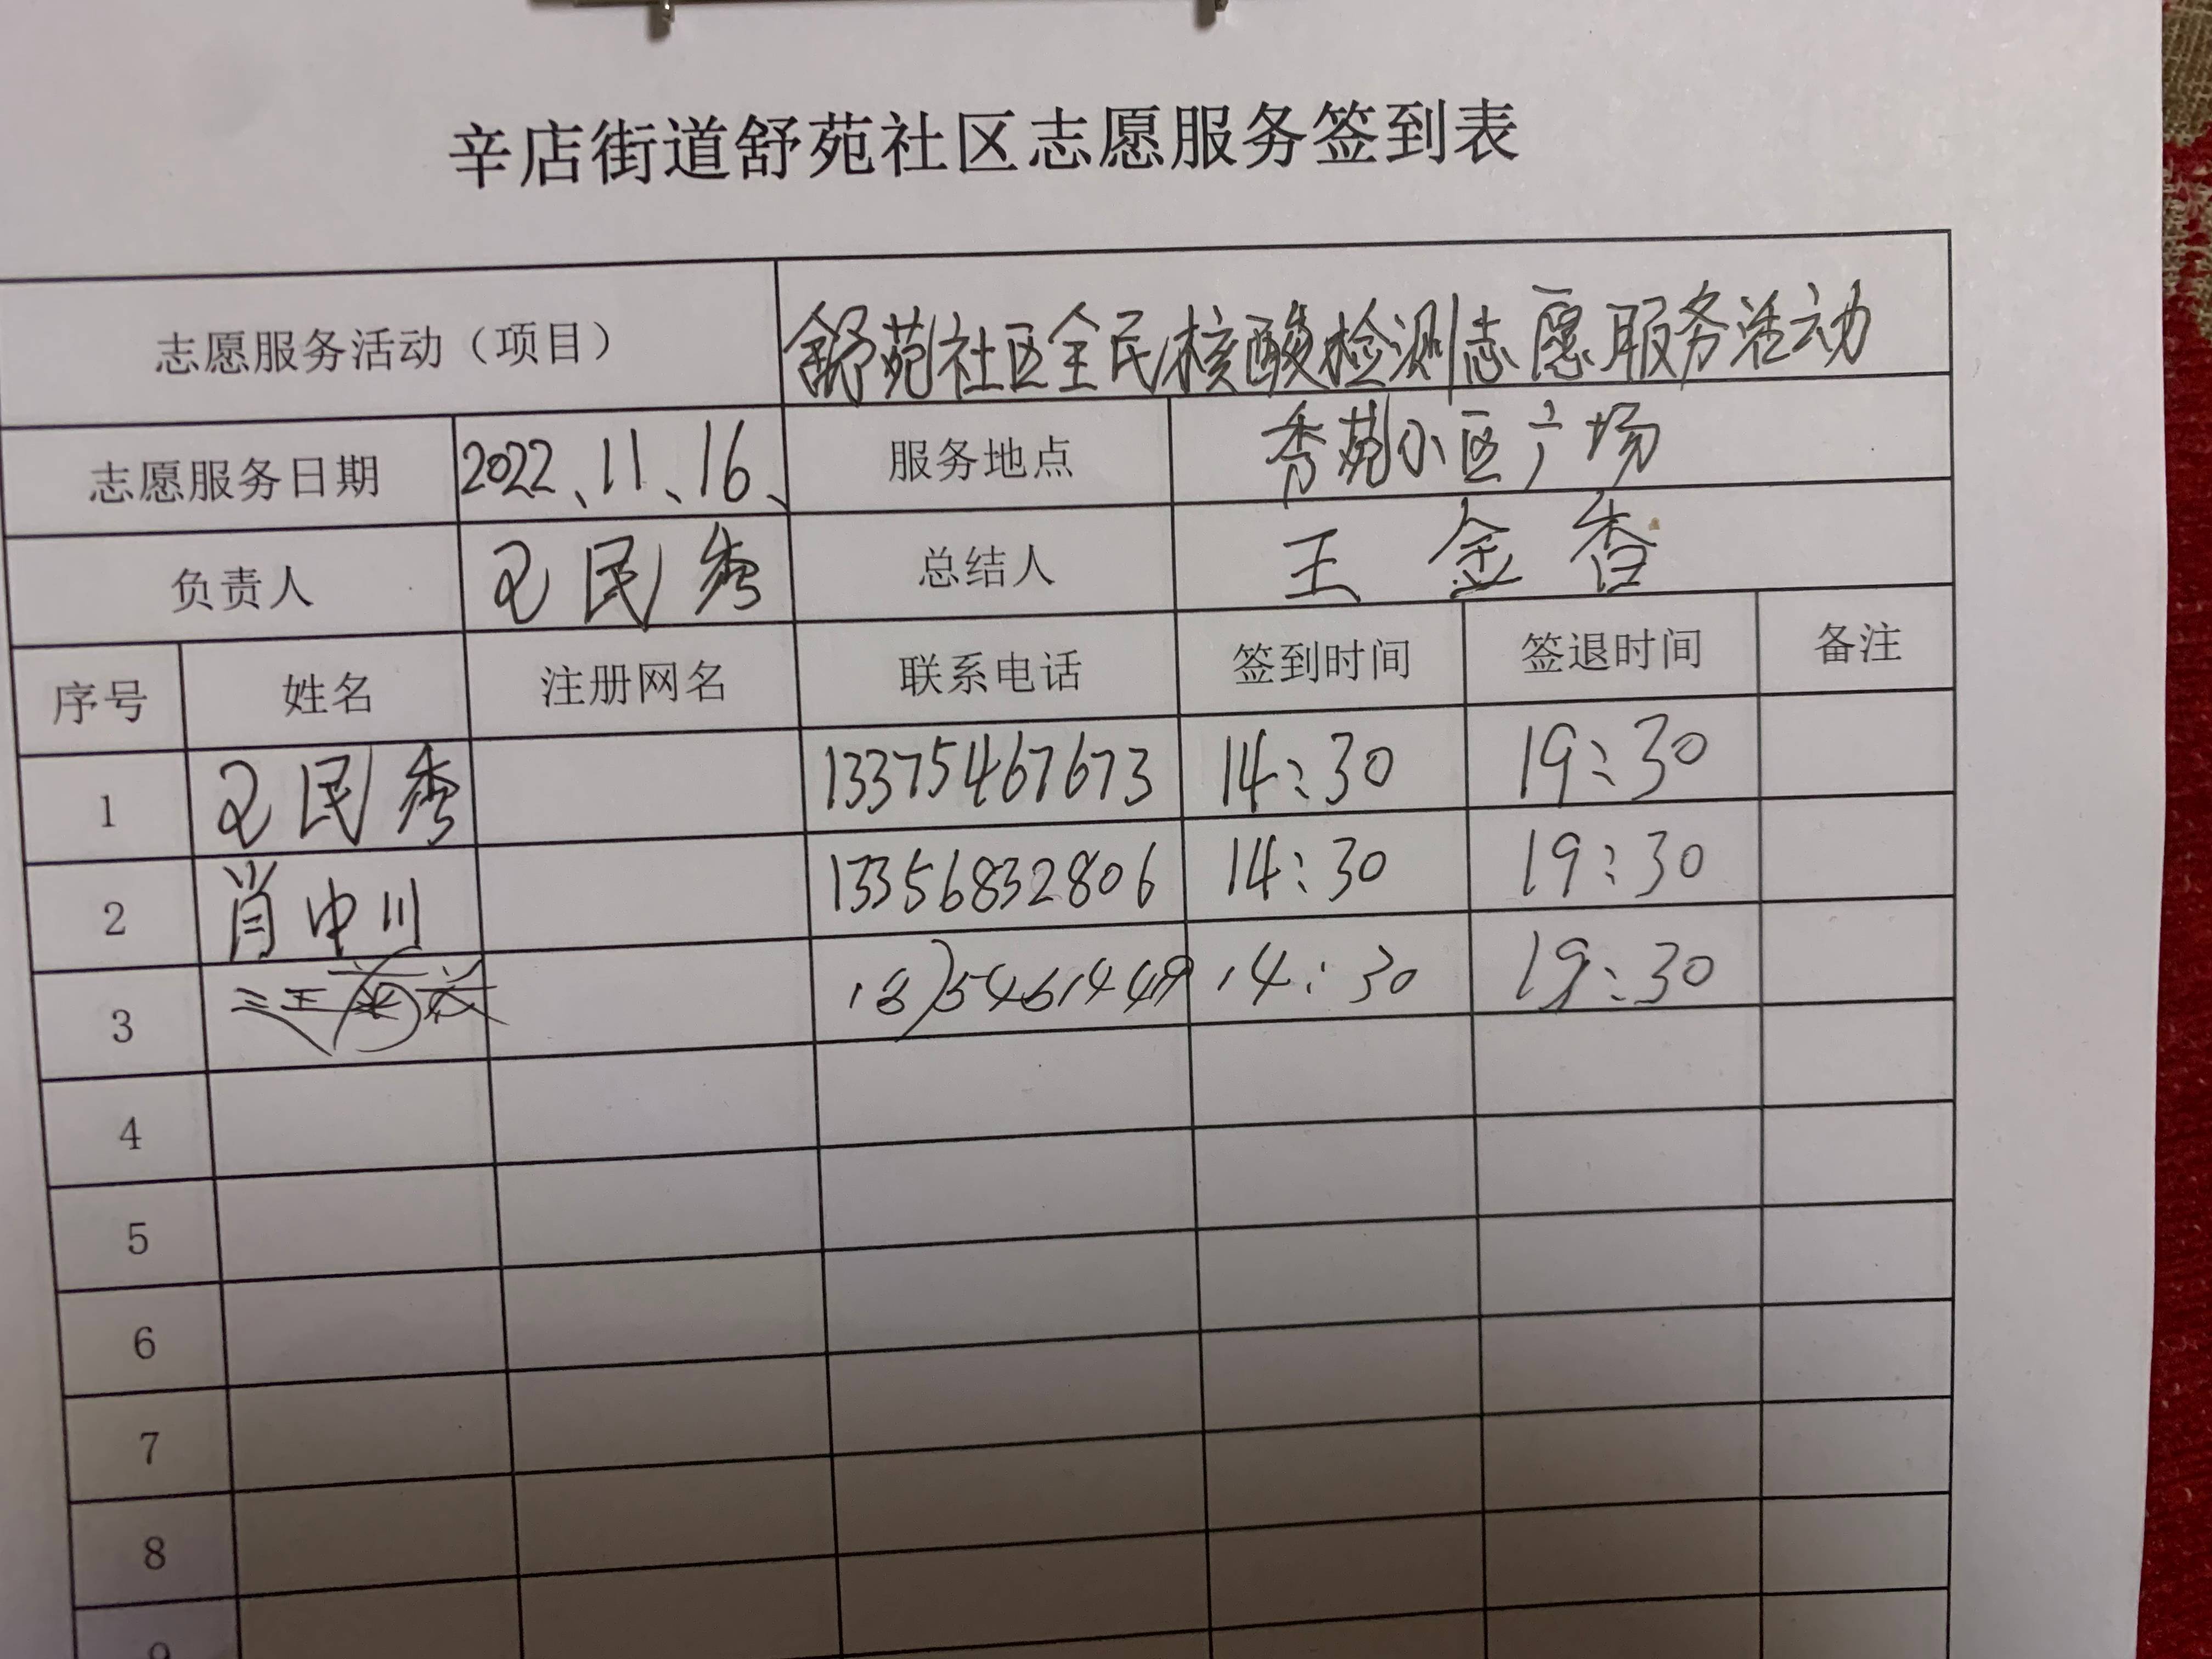 辛店街道舒苑社区志愿服务签到表
志愿服务活动（项目） 舒苑社区全民核酸检测志愿服务活动
志愿服务日期 2022、11、16、 服务地点 秀苑小区广场
负责人 民秀 总结人 王金香
序号 姓名 注册网名 联系电话 签到时间 签退时间 备注
1 民秀 13375467673 14:30 19:30
2 肖中川 13356832806 14:30 19:30
3 14:30 19:30
4
5
6
7
8
9